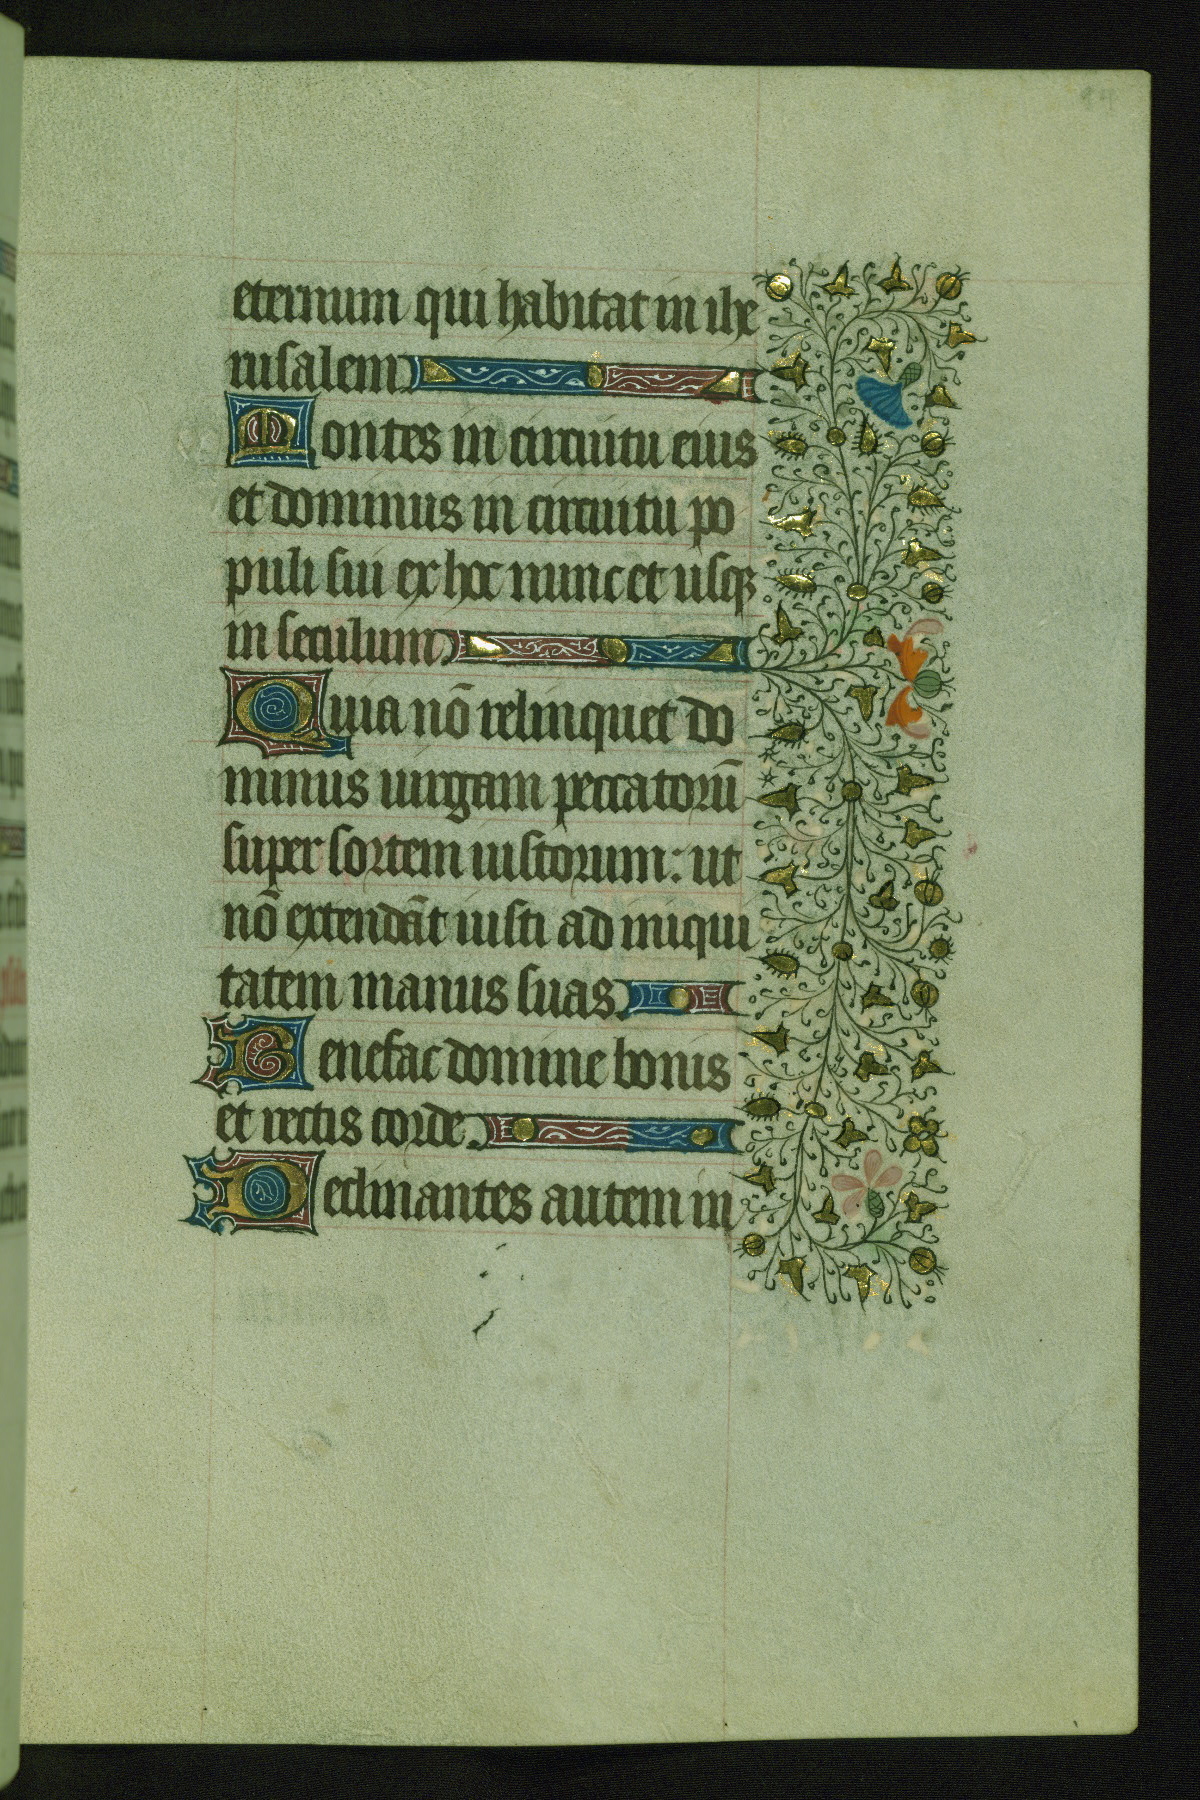 eternum qui habitat in ihe
rusalem
Montes in circuitu eius
et dominus in circuitu po
puli sui ex hoc nunc et usqꝫ
in seculum
Quia nō relinquet do
minus uirgam peccatorū
super sortem iustorum: ut
nō extendāt iusti ad iniqui
tatem manus suas
Benefac domine bonis
et rectis corde.
Declinantes autem in